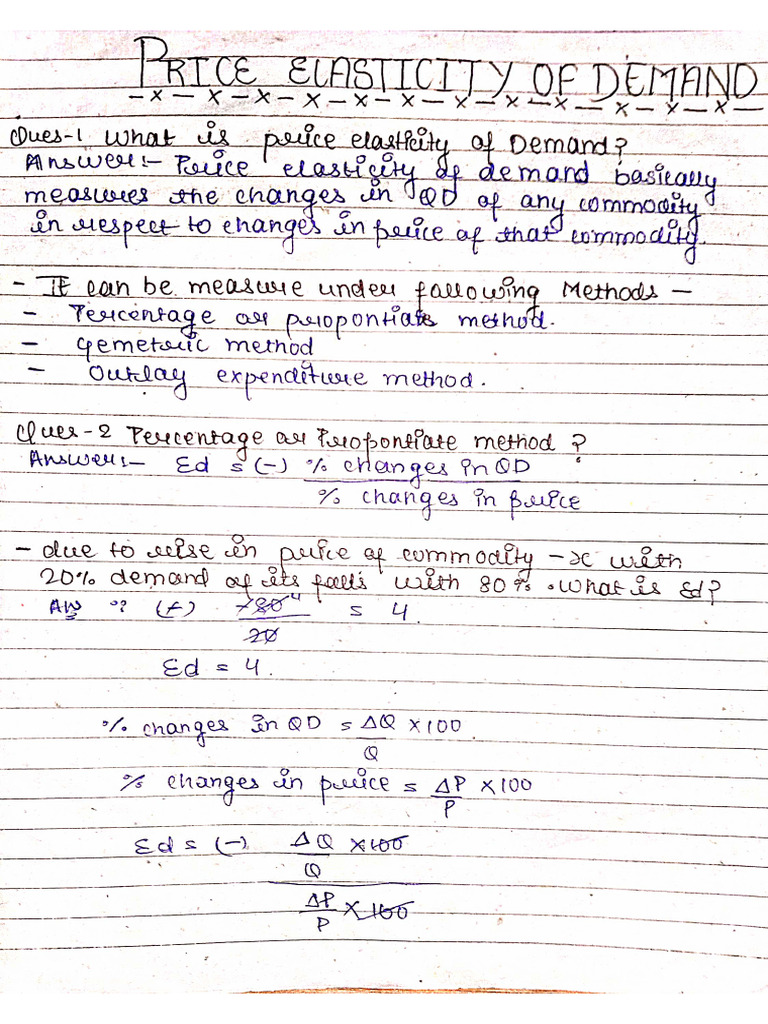 PRICE ELASTICITY OF DEMAND
-x-x-x-x-x-x-x-x-x-x-x-x-
Ques-1 What is price elasticity of Demand?
Answer:- Price elasticity of demand basically
measures the changes in QD of any commodity
in respect to changes in price of that commodity.
- It can be measure under following Methods -
- Percentage or propontiate method.
- Gemetric method
- Outlay expenditure method.
Ques-2 Percentage or Propontiate method?
Answer:- Ed = (-) % changes in QD
% changes in price
- due to rise in price of commodity -x with
20% demand of its falls with 80%. What is Ed?
Ans :: (-) -80 4 = 4.
20
Ed = 4.
% changes in QD = ΔQ x100
Q
% changes in price = ΔP x100
P
Ed = (-) ΔQ x100
Q
ΔP x100
P